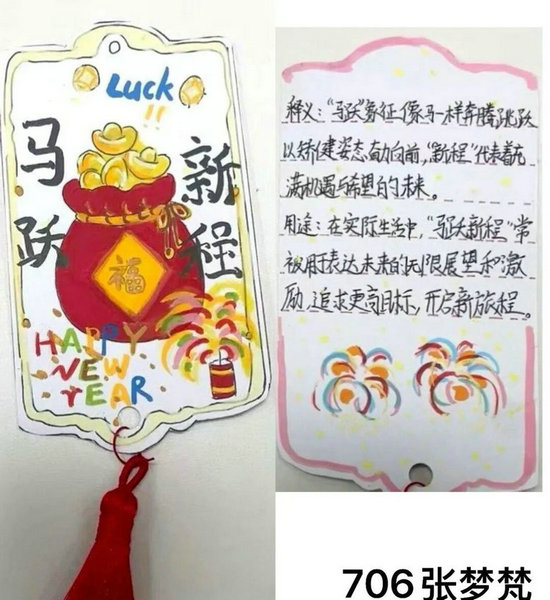 Luck
!!
马跃
新程
福
HAPPY
NEW
YEAR
释义："马跃"象征像马一样奔腾跳跃
以矫健姿态奋力向前，"新程"代表着充
满机遇与希望的未来。
用途：在实际生活中，"马跃新程"常
被用于表达未来的无限展望和激
励，追求更高目标，开启新旅程。
706张梦梵